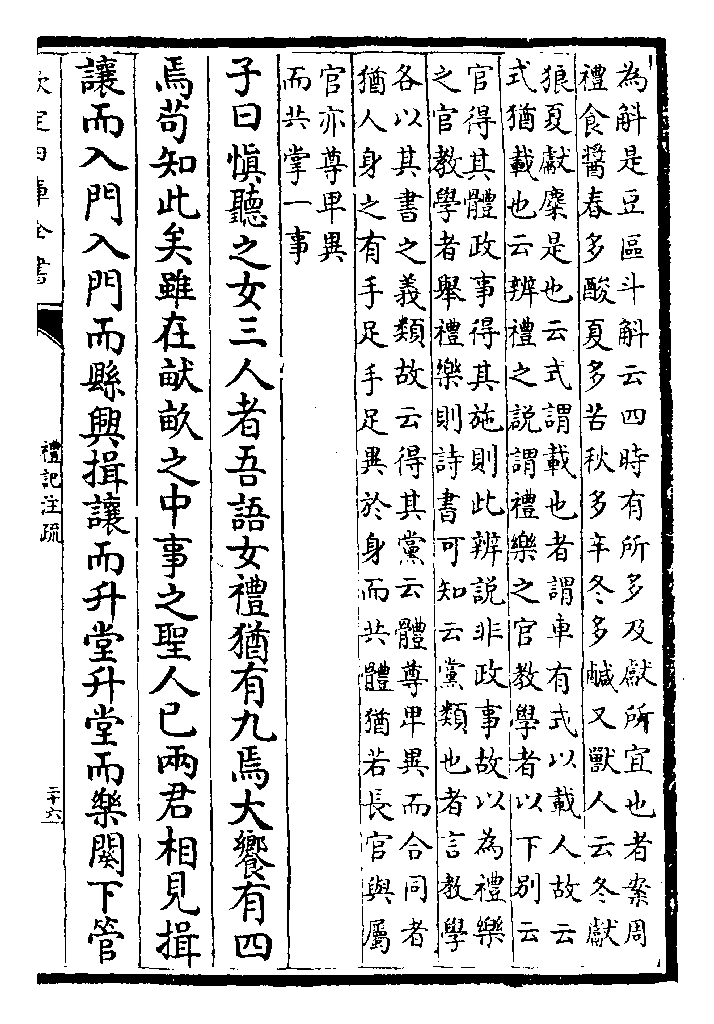 為斛是豆區斗斛云四時有所多及獻所宜也者案周
禮食醬春多酸夏多苦秋多辛冬多鹹又獸人云冬獻
狼夏獻麋是也云式謂載也者謂車有式以載人故云
式猶載也云辨禮之説謂禮樂之官教學者以下别云
官得其體政事得其施則此辨説非政事故以為禮樂
之官教學者舉禮樂則詩書可知云黨類也者言教學
各以其書之義類故云得其黨云體尊卑異而合同者
猶人身之有手足手足異於身而共體猶若長官與屬
官亦尊卑異
而共掌一事
子曰慎聽之女三人者吾語女禮猶有九焉大饗有四
焉苟知此矣雖在畎畝之中事之聖人已兩君相見揖
讓而入門入門而縣興揖讓而升堂升堂而樂闋下管
欽定四庫全書
禮記注疏
二十六